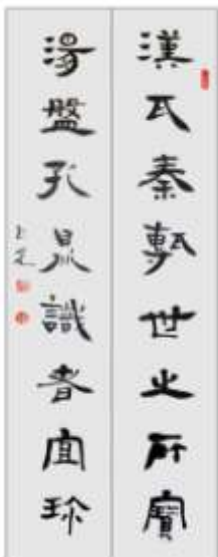 漢瓦秦甎世之所寶
湯盤孔鼎識者宜珍